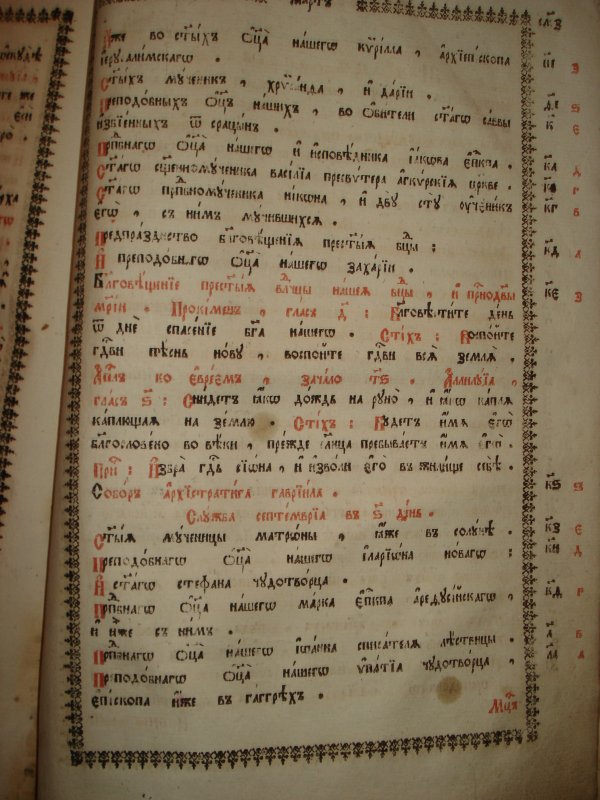 мартъ сл҃з
И҆́же во ст҃ы́хъ ѻ҆ц҃а̀ на́шегѡ кѷрі́лла , а҆рхїепи́скопа
і҆ерꙋсали́мскагѡ .
Ст҃ы́хъ мꙋ́ченикъ , хрѷса́нѳа , и҆ да́рїи . з
Преподо́бныхъ ѻ҆ц҃ъ на́шихъ , во ѻ҆би́тели ст҃а́гѡ са́ввы
и҆збїе́нныхъ ѿ сраци́нъ . к҃ є
Прпⷣбнагѡ ѻ҆ц҃а̀ на́шегѡ и҆ и҆сповѣ́дника і҆а́кѡва є҆пⷭ҇кпа . к҃а д
Ст҃а́гѡ сщ҃енномꙋ́ченика васі́лїа пресвѵ́тера а҆гкѵ́рскїѧ цр҃кве . к҃в г
Ст҃а́гѡ прпⷣбномꙋ́ченика ні́кѡна , и҆ двꙋ̀ стꙋ̀ ᲂу҆чени̑къ к҃г в
є҆гѡ̀ , съ ни́мъ мꙋ́чившихсѧ .
Предпра́зднство бл҃говѣ́щенїѧ прест҃ы́ѧ бцⷣы :
И҆ преподо́бнагѡ ѻ҆ц҃а̀ на́шегѡ заха́рїи . к҃д а
Бл҃говѣ́щенїе прест҃ы́ѧ влⷣчцы на́шеѧ бцⷣы , и҆ прⷭ҇нодв҃ы к҃є з
мр҃і́и . Проки́менъ , гла́съ д҃ : Бл҃говѣсти́те де́нь
ѿ днѐ спасе́нїе бг҃а на́шегѡ . Сті́хъ : Воспо́йте
гдⷭ҇ви пѣ́снь но́вꙋ , воспо́йте гдⷭ҇ви всѧ̀ землѧ̀ .
А҆пⷭ҇лъ ко є҆вре́ємъ , зача́ло т҃ѕ . А҆ллилꙋ́їа ,
гла́съ ѕ҃ : Сни́детъ ꙗ҆́кѡ до́ждь на рꙋно̀ , и҆ ꙗ҆́кѡ ка́плѧ
ка́плющаѧ на зе́млю . Сті́хъ : Бꙋ́детъ и҆́мѧ є҆гѡ̀
бл҃гослове́но во вѣ́ки , пре́жде сл҃нца пребыва́етъ и҆́мѧ є҆гѡ̀ .
При́ч : И҆збра̀ гдⷭ҇ь сїѡ́на , и҆ и҆зво́ли є҆го̀ въ жили́ще себѣ̀ .
Собо́ръ а҆рхїстрати́га гаврїи́ла . к҃ѕ ѕ
Слꙋ́жба септе́мврїа въ ѕ҃ де́нь .
Ст҃ы́ѧ мꙋ́ченицы матрѡ́ны , ꙗ҆́же въ солꙋ́нѣ . к҃з є
Преподо́бнагѡ ѻ҆ц҃а̀ на́шегѡ і҆ларїѡ́на но́вагѡ : к҃и д
И҆ ст҃а́гѡ стефа́на чꙋдотво́рца .
Прпⷣбнагѡ ѻ҆ц҃а̀ на́шегѡ ма́рка є҆пⷭ҇кпа а҆редꙋсі́йскагѡ , к҃ѳ г
и҆ и҆̀же съ ни́мъ .
Прпⷣбнагѡ ѻ҆ц҃а̀ на́шегѡ і҆ѡа́нна списа́телѧ лѣ́ствицы . л҃ в
Преподо́бнагѡ ѻ҆ц҃а̀ на́шегѡ ᲂу҆па́тїа чꙋдотво́рца , л҃а а
є҆пі́скопа и҆́же въ га́ггрѣхъ .
Мцⷭ҇ъ